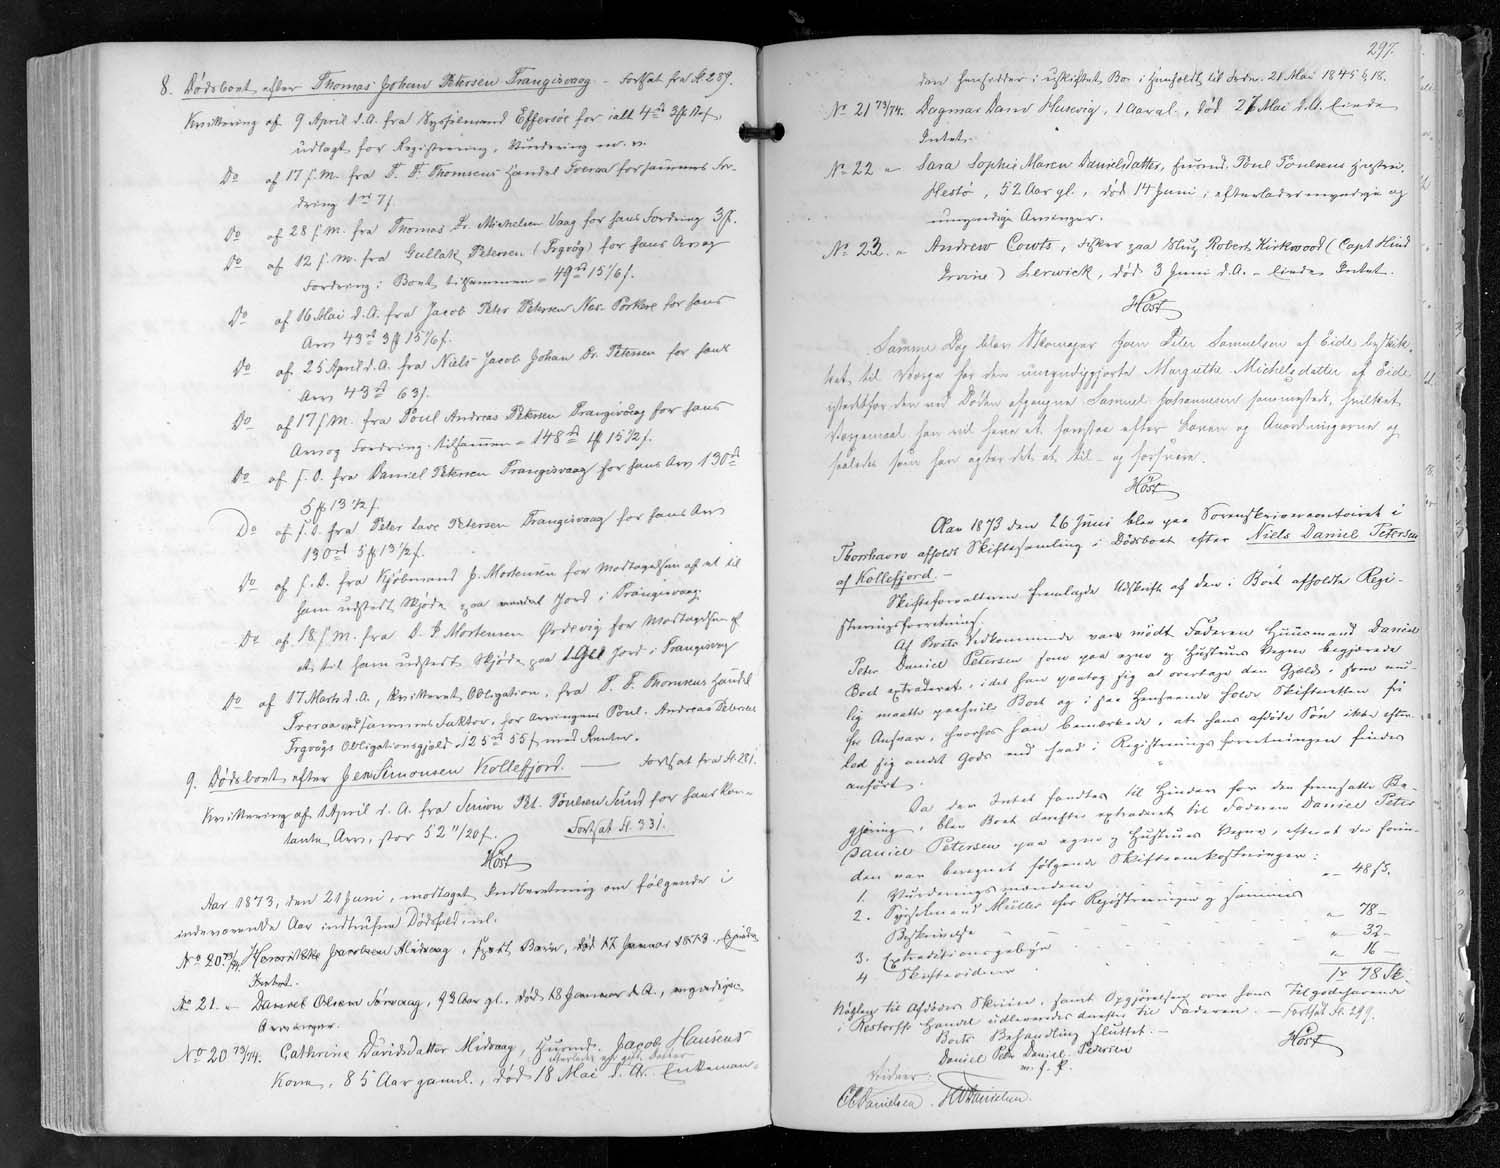 8. Dødsboet efter Thomas Johan Petersen Trangisvaag. – Fortsat fra S. 289.
Kvittering af 9 April d.A. fra Sysselmand Effersöe for ialt 4 rd 3 [?]
udlagt for Registrering, Vurdering m.v.
Do af 17 f.M. fra T. F. Thomsens Handel Tveraa for sammes For-
dring 1 rd 7 f.
Do af 28 f.M. fra Thomas Dr. Michelsen Vaag for hans Fordring
Do af 12 f.M. fra Gullak Petersen (Frgvåg) for hans Arv og
Fordring i Boet tilsammen = 49 rd 15 1/6 f.
Do af 16 Mai d.A. fra Jacob Peter Petersen Nes. Porkere for hans
Arv 43 rd 3 [?] 15 1/6 f.
Do af 25 April d.A. fra Niels Jacob Johan Dr. Petersen for hans
Arv 43 rd 63 f.
Do af 17 f.M. fra Poul Andreas Petersen Trangisvaag for hans
Arv og Fordring tilsammen = 148 rd 15 1/2 f.
Do af f.D. fra Daniel Petersen Trangisvaag for hans Arv 130 rd
5 13 1/2 f.
Do af f.D. fra Peter Lave Petersen Trangisvaag for hans Arv
130 rd 5 13 1/2 f.
Do af f.D. fra Kjøbmand J. Mortensen for Modtagelsen af et til
ham udstedt Skjøde paa Jord i Trangisvaag.
Do af 18 f.M. fra D. P. Mortensen Ørdevig for Modtagelsen af
et til ham udstedt Skjøde paa 1 Gl Jord i Trangisvaag
Do af 17 Marts d.A., kvitteret Obligation, fra T. F. Thomsens Handel
Tveraa ved sammes Faktor, for Arvingen Poul Andreas Petersen
Frgvågs Obligationsgjæld 125 rd 55 f med Renter.
9. Dødsboet efter Jens Simonsen Kollefjord. – Fortsat fra S. 281.
Kvittering af 1 April d.A. fra Simon Pet. Poulsen Sund for hans Kon-
tante Arv, stor 52 11/20 f. Fortsat S. 331.
Höst
Aar 1873, den 21 Juni, modtaget Indberetning om følgende i
indeværende Aar indtrufne Dødsfald, nl.
No 20 73/74. Jacobsen Midvaag, Barn, død 17 Januar 1873. Efterlader
Intet.
No 21. " Daniel Olsen Sørvaag, 93 Aar gl., død 18 Januar d.A., myndige
Arvinger.
No 20 73/74. Cathrine Davidsdatter Midvaag, Huusmd. Jacob Hansens
efterlader en gift Datter
Kone, 85 Aar gaml., død 18 Mai d. Ar. Enkeman-
297.
den henholder i uskiftet Bo i Henhold til Frdn. 21 Mai 1845 § 18.
No 21 73/74. Dagmar Danv Husevig, 1 Aar al., død 27 Mai d.A. Eiede
Intet.
No 22 " Sara Sophie Maren Danielsdatter, Huusmd. Poul Poulsens Hustru,
Hestø, 52 Aar gl., død 14 Juni, efterlader myndige og
umyndige Arvinger.
No 23. " Andrew Cowts, Fisker paa Slup Robert Kirkwood (Capt Hind
Irvine) Lerwick, død 3 Juni d.A. – Eiede Intet.
Höst
Samme Dag blev Skomager Joen Peter Samuelsen af Eide beskik-
ket til Værge for den umyndiggjorte Margrethe Michelsdatter af Eide
istedetfor den ved Døden afgangne Samuel Johannesen sammesteds, hvilket
Værgemaal han vil have at forestaae efter Loven og Anordningerne og
saaledes som han agter det at til- og forsvare.
Höst
Aar 1873 den 26 Juni blev paa Sorenskrivercontoiret i
Thorshavn afholdt Skiftesamling i Dødsboet efter Niels Daniel Petersen
af Kollefjord. –
Skifteforvalteren fremlagde Udskrift af den i Boet afholdte Regi-
streringsforretning.
Af Boets Vedkommende var mødt Faderen Huusmand Daniel
Peter Daniel Petersen som paa egne og Hustrues Vegne begjærede
Boet extraderet, idet han paatog sig at overtage den Gjæld, som mu-
lig maatte paahvile Boet og i saa Henseende holde Skifteretten fri
for Ansvar, hvorhos han bemærkede, at hans afdøde Søn ikke efter-
lod sig andet Gods end hvad i Registreringsforretningen findes
anført.
Da der Intet fandtes til Hinder for den fremsatte Be-
gjæring, blev Boet derefter extraderet til Faderen Daniel Peter
Daniel Petersen paa egne og Hustrues Vegne, efterat der forin-
den var beregnet følgende Skifteomkostninger:
1. Vurderingsmændene " – 48 ß.
2. Sysselmand Müller for Registreringen og sammes
Beskrivelse " – 78 –
3. Extraditionsgebyr " – 32 –
4 Skifteviderne " – 16 –
1 r 78 Sk.
Nøglen til Afdødes Skriin, samt Opgjørelsen over hans Tilgodehavende
i Restorffs Handel udleveredes derefter til Faderen. – Fortsat S. 299.
Boets Behandling sluttet. –
Höst
Daniel Petr Daniel Pedersen
m. f. P.
Vidner:
Danielsen. Danielsen.